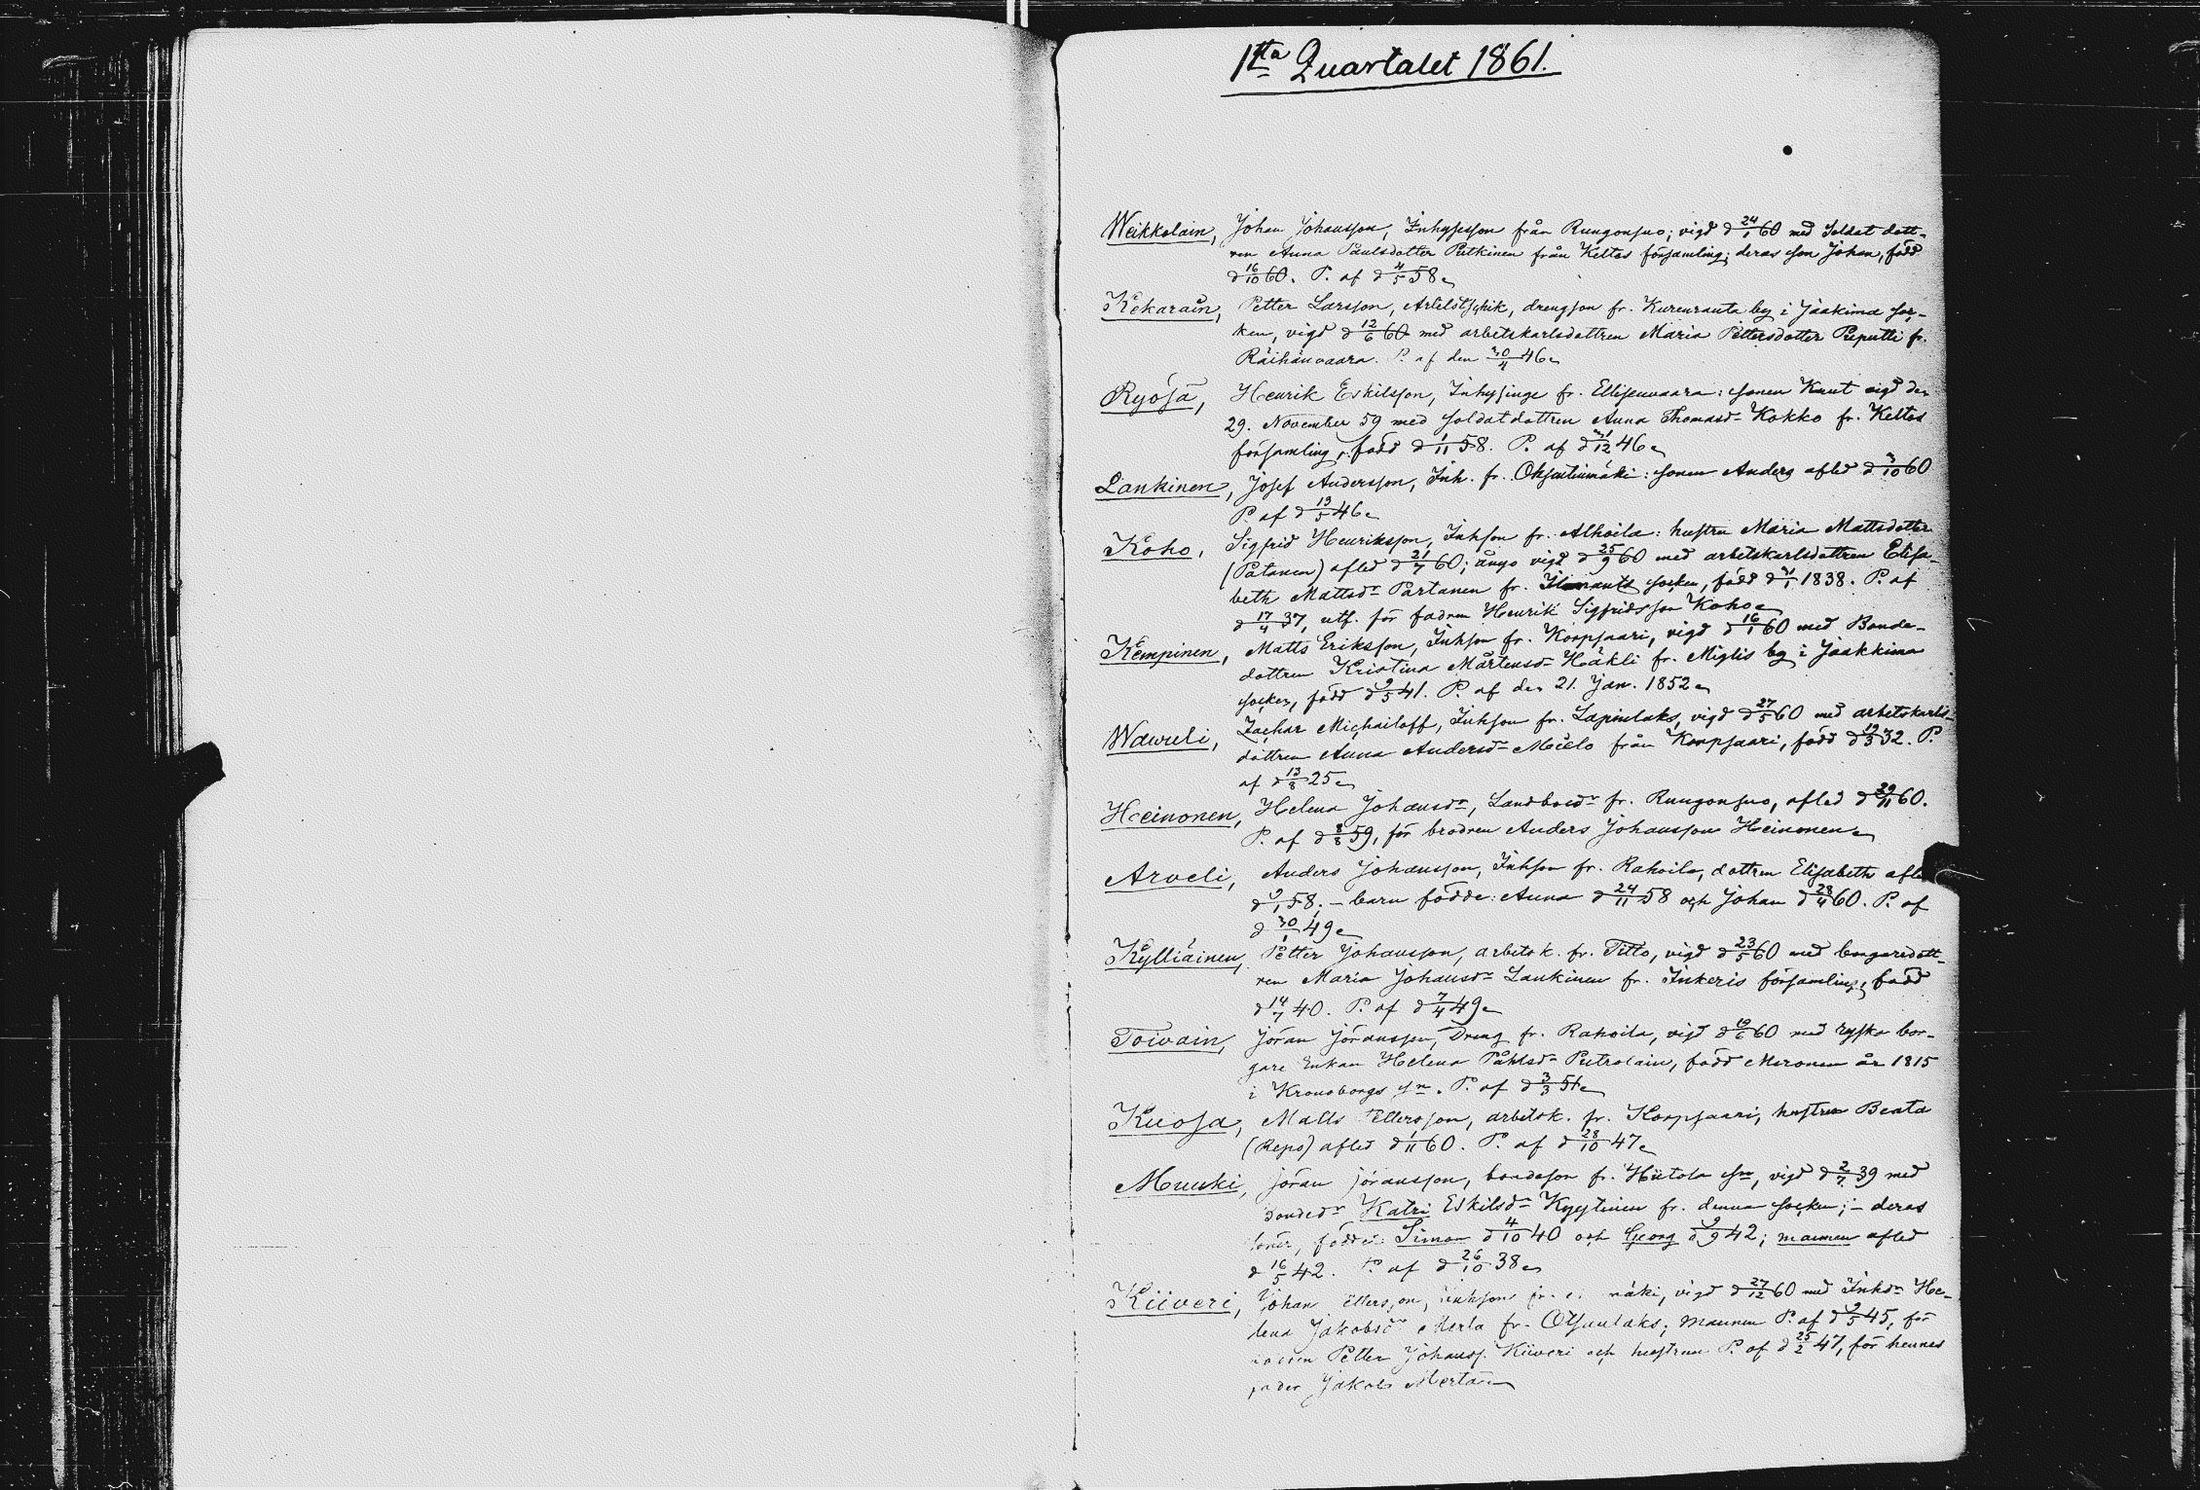 1sta Quartalet 1861.
Weikkolain, Johan Johansson, Inhysesson från Rungonsuo; vigd d 24/1 60 med Soldat dott-
ren Anna Paulsdotter Putkinen från Keltos församling; deras son Johan, född
d 16/10 60. P. af d 4/5 58
Kekarain, Petter Larsson, drengson fr. Kurenrauta by i Jaakima soc-
ken, vigd d 12/6 60 med arbetskarlsdottren Maria Pettersdotter Preputti fr.
Räihänvaara. P. af den 30/4 46
Ryösä, Henrik Eskilsson, Inhysinge fr. Ellisenvaara: sonen Knut vigd den
29. November 59 med soldatdottren Anna Thomasd:r Kokko fr. Keltos
församling, född d 1/11 58. P. af d 31/12 46
Lankinen, Josef Andersson, Inh. fr. Oksentiimäki: sonen Anders afled d 3/10 60
P. af d 13/5 46
Koho, Sigfrid Henriksson, Inhson fr. Alhoila: hustru Maria Mattsdotter
(Patanen) afled d 21/7 60; ånyo vigd d 25/9 60 med arbetskarlsdottren Elisa-
beth Mattsd:r Partanen fr. Ilomants socken, född d 31/1 1838. P. af
d 17/4 37, utf. för fadren Henrik Sigfridsson Koho
Kempinen, Matts Eriksson, Inhson fr. Korpsaari, vigd d 16/1 60 med Bonde-
dottren Kristina Mårtensd:r Häkli fr. Miglis by i Jaakkima
socken, född d 9/5 41. P. af den 21. Jan. 1852
Wawuli, Zachar Michailoff, Inhson fr. Lapinlaks, vigd d 27/5 60 med arbetskarls-
dottren Anna Andersd:r Mielo från Korpsaari, född d 19/3 32. P.
af d 13/8 25
Heinonen, Helena Johansd:r, Landbod:r fr. Rungonsuo, afled d 29/11 60.
P. af d 8/8 59, för brodren Anders Johansson Heinonen
Arveli, Anders Johansson, Inhson fr. Rahoila, dottren Elisabeth afled
d 9/1 58. – barn födde: Anna d 24/11 58 och Johan d 28/4 60. P. af
d 30/1 49
Kylliäinen, Petter Johansson, arbetsk. fr. Titto, vigd d 23/5 60 med borgaredott-
ren Maria Johansd:r Lankinen fr. Inkeris församling, född
d 14/7 40. P. af d 7/4 49
Toivain, Jöran Jöransson, Dreng fr. Rahoila, vigd d 10/6 60 med ryska bor-
gare Enkan Helena Påhlsd:r Putrolain, född Meronen år 1815
i Kronoborgs s:n. P. af d 3/3 51
Kuosa, Matts Pettersson, arbetsk. fr. Korpsaari, hustrun Beata
(Repo) afled d 1/11 60. P. af d 28/10 47
Muuski, Jöran Jöransson, bondeson fr. Hiitola s:n, vigd d 2/7 39 med
bonded:r Katri Eskilsd:r Kyytinen fr. denna socken; – deras
söner, födde: Simon d 4/10 40 och Georg d 9/9 42; mannen afled
d 16/5 42. P. af d 26/10 38
Kiiveri, Johan Pettersson, Inhson fr. mäki, vigd d 27/12 60 med Inhd:r He-
lena Jakobsd:r Merta fr. Otsanlaks; mannen P. af d 9/5 45, för
Petter Johanss. Kiiveri och hustrun P. af d 25/2 47, för hennes
fader Jakob Merta